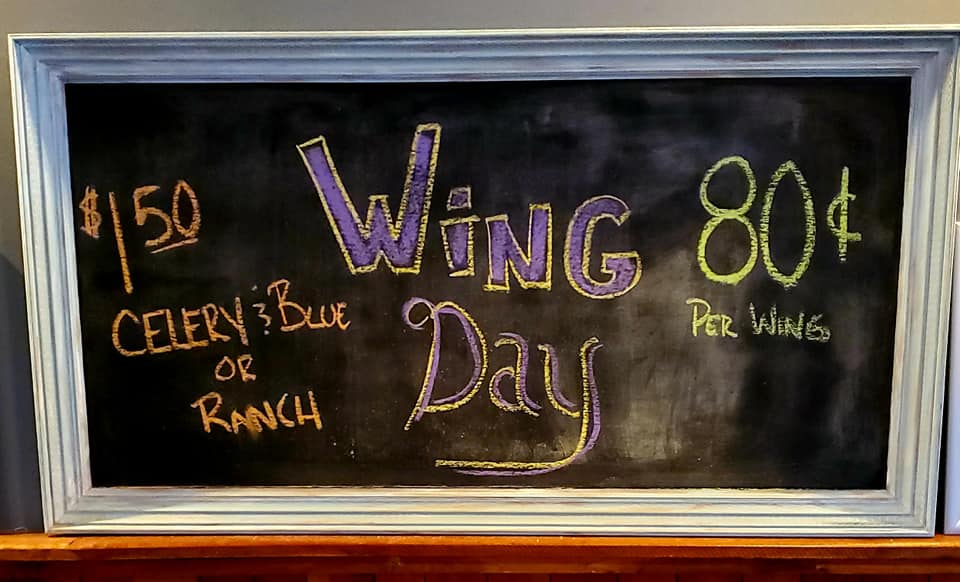 $1 50
CELERY & BLUE
OR
RANCH
WING
Day
80¢
PER WING